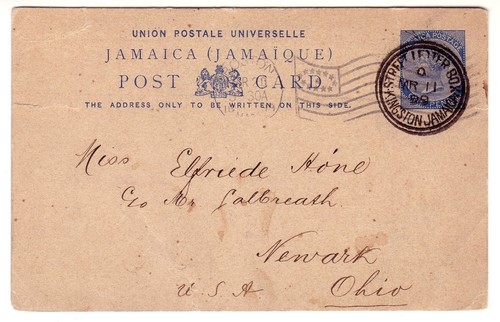 UNION POSTALE UNIVERSELLE
JAMAICA (JAMAÏQUE)
POST CARD
THE ADDRESS ONLY TO BE WRITTEN ON THIS SIDE.
JAMAICA POSTAGE
STREET LETTER BOX
MR 11
KINGSTON JAMAICA
Miss Elfriede Höne
C/o Mr Galbreath
Newark
Ohio
U S A